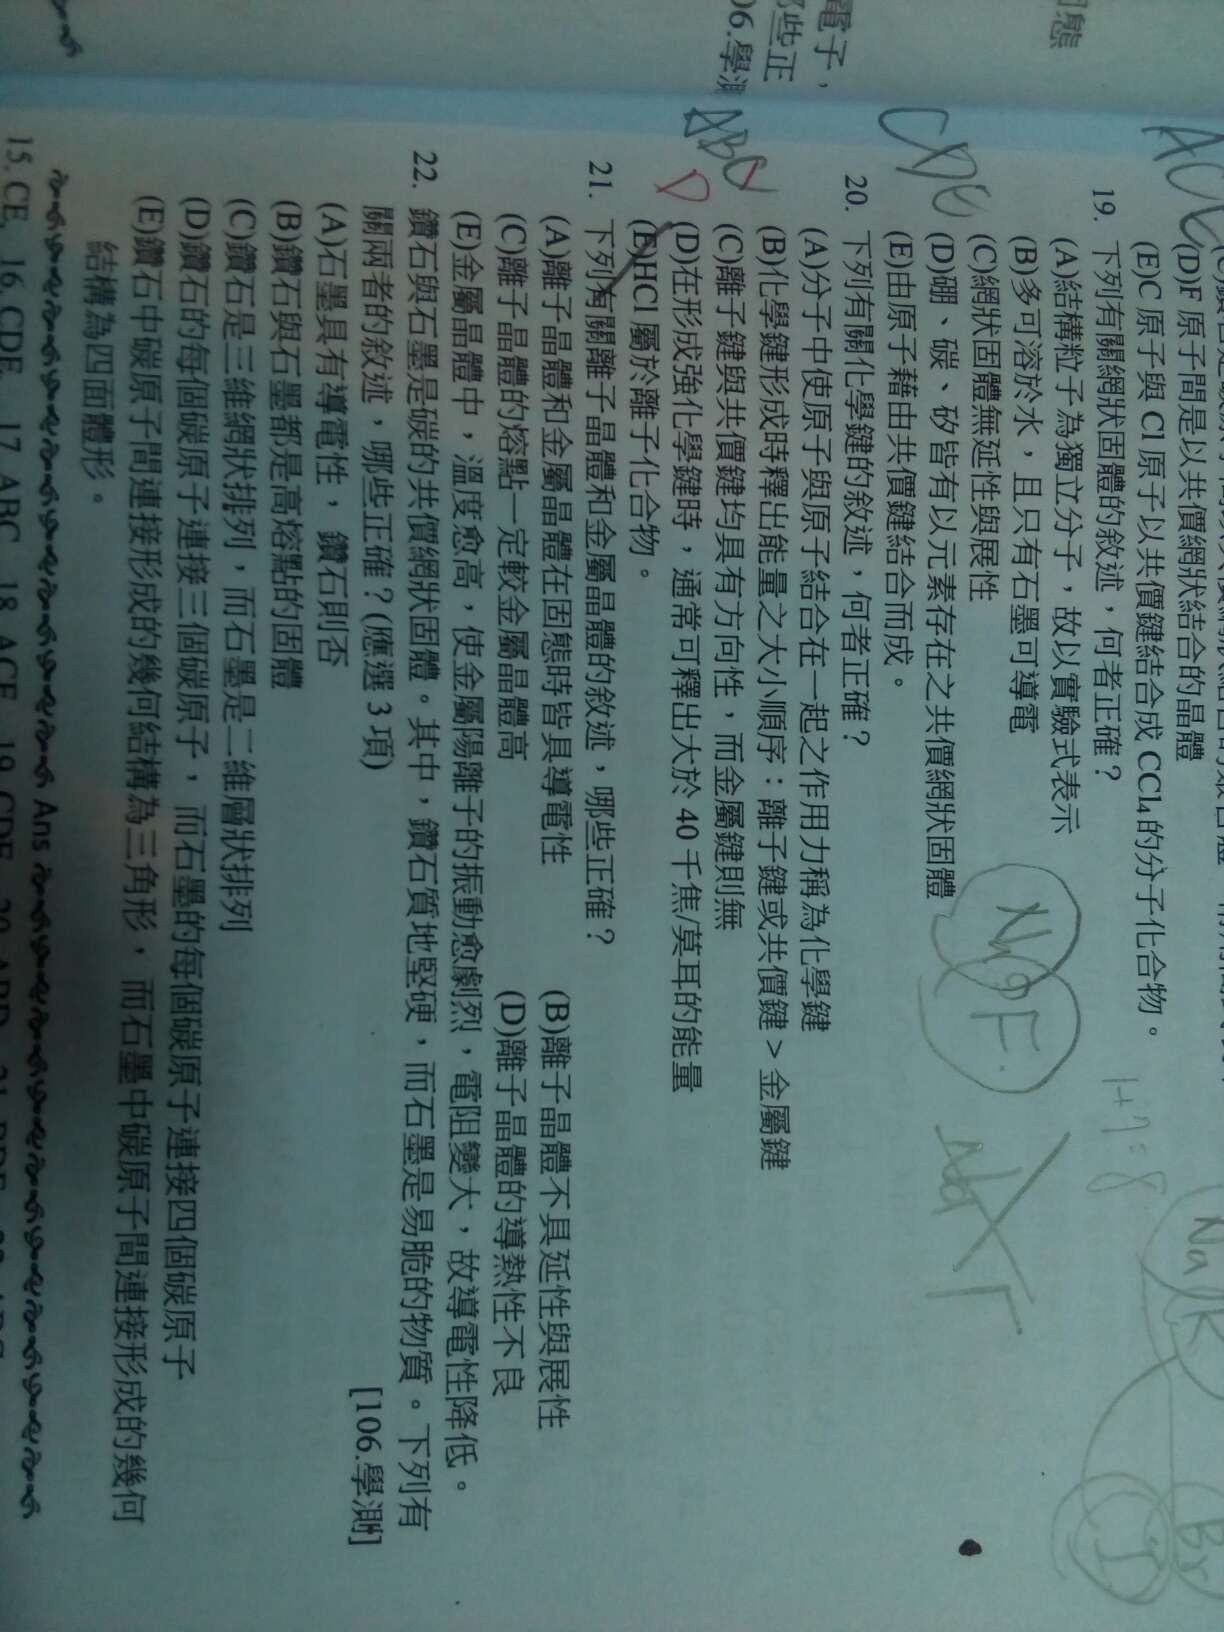 電子，
些正
06.學測
ABC
D
ACE
CDE
(D)F 原子間是以共價網狀結合的晶體
(E)C 原子與 Cl 原子以共價鍵結合成 CCl4 的分子化合物。
19. 下列有關網狀固體的敘述，何者正確？
(A)結構粒子為獨立分子，故以實驗式表示
(B)多可溶於水，且只有石墨可導電
(C)網狀固體無延性與展性
(D)硼、碳、矽皆有以元素存在之共價網狀固體
(E)由原子藉由共價鍵結合而成。
20. 下列有關化學鍵的敘述，何者正確？
(A)分子中使原子與原子結合在一起之作用力稱為化學鍵
(B)化學鍵形成時釋出能量之大小順序：離子鍵或共價鍵 > 金屬鍵
(C)離子鍵與共價鍵均具有方向性，而金屬鍵則無
(D)在形成強化學鍵時，通常可釋出大於 40 千焦/莫耳的能量
(E)HCl 屬於離子化合物。
21. 下列有關離子晶體和金屬晶體的敘述，哪些正確？
(A)離子晶體和金屬晶體在固態時皆具導電性 (B)離子晶體不具延性與展性
(C)離子晶體的熔點一定較金屬晶體高 (D)離子晶體的導熱性不良
(E)金屬晶體中，溫度愈高，使金屬陽離子的振動愈劇烈，電阻變大，故導電性降低。
22. 鑽石與石墨是碳的共價網狀固體。其中，鑽石質地堅硬，而石墨是易脆的物質。下列有
關兩者的敘述，哪些正確？(應選 3 項) [106.學測]
(A)石墨具有導電性，鑽石則否
(B)鑽石與石墨都是高熔點的固體
(C)鑽石是三維網狀排列，而石墨是二維層狀排列
(D)鑽石的每個碳原子連接三個碳原子，而石墨的每個碳原子連接四個碳原子
(E)鑽石中碳原子間連接形成的幾何結構為三角形，而石墨中碳原子間連接形成的幾何
結構為四面體形。
Ans
15. CE 16. CDE 17. ABC 18. ACE 19. CDE
1+7=8
Na F
Na K
Br
I